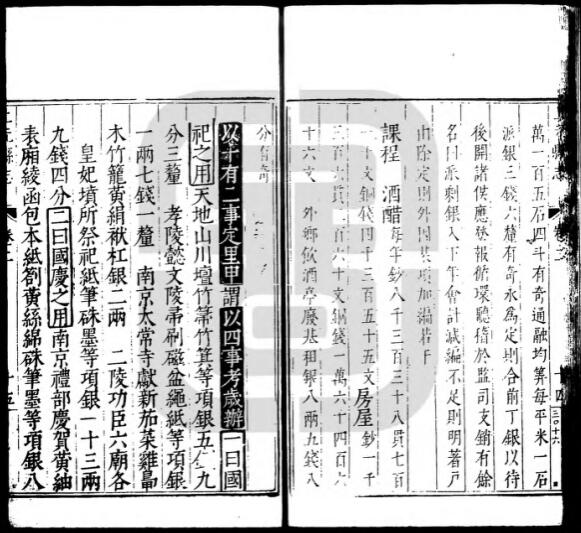 萬一百五石四斗有奇通融均筭每平米一石
派銀三錢六釐有奇永爲定則合前丁銀以待
後開諸供應祭報循環聽稽於監司支銷有餘
名曰派剩銀入下年會計減編不足則明著戶
由除定則外因某項加編若干
課程 酒醋每年鈔八千三百三十八貫七百
二十文銅錢四千三百五十五文房屋鈔一千
三百六貫二百六十文銅錢一萬六千四百六
十六文 外鄉飲酒亭廢基租銀八兩五錢八
分有奇
以十有二事定里甲謂以四事考歲辦一曰國
祀之用天地山川壇竹箒竹筐等項銀五錢九
分三釐 孝陵懿文陵帚刷磁盆繩紙等項銀
一兩七錢一釐 南京太常寺獻新茄菜雞鼠
木竹籠黃絹袱杠銀二兩 二陵功臣六廟各
皇妃墳所祭祀紙筆硃墨等項銀一十三兩
九錢四分二曰國慶之用南京禮部慶賀黃紬
表廂綾函包本紙劄黃絲綿硃筆墨等項銀八
縣志
卷二